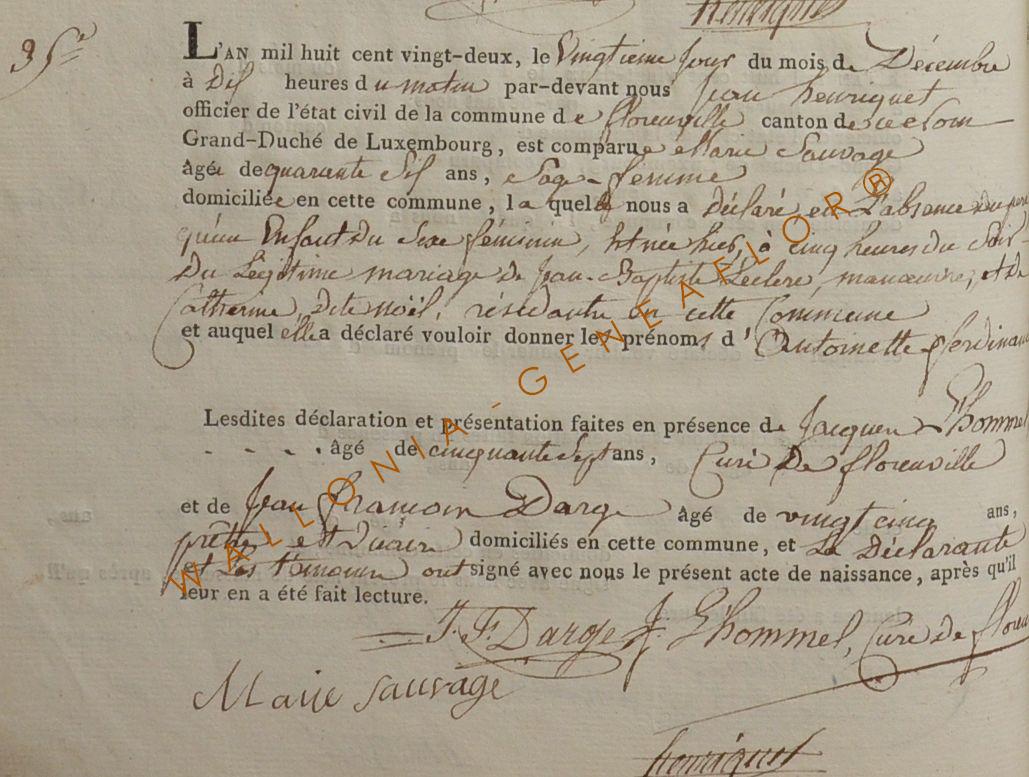 henriquet
35e
L'AN mil huit cent vingt-deux, le Vingtieme jour du mois de Décembre
à Dix heures du matin par-devant nous jean henriquet
officier de l'état civil de la commune de florenville canton de
Grand-Duché de Luxembourg, est comparue Marie Sauvage
âgée de quarante Six ans, Sage-femme
domiciliée en cette commune, laquelle nous a déclaré en L'absence Du pere
qu'un Enfant Du Sexe féminin, Est née hier, à Cinq heures du Soir
Du Legitime mariage de Jean-Baptiste Leclere, manoeuvre, et de
Catherine, Dite noël, résidante en cette Commune
et auquel elle a déclaré vouloir donner les prénoms d'Antoinette ferdinan
Lesdites déclaration et présentation faites en présence de Jacques Lhommel
âgé de cinquante Sept ans, Curé De florenville
et de Jean françois Darge âgé de vingt cinq ans,
prêtre et vicaire domiciliés en cette commune, et La Déclarante
et Les témoins ont signé avec nous le présent acte de naissance, après qu'il
leur en a été fait lecture.
J. F. Darge J. Lhommel, Curé de floren
Marie sauvage
henriquet
WALLONIA-GENEAFLOR®